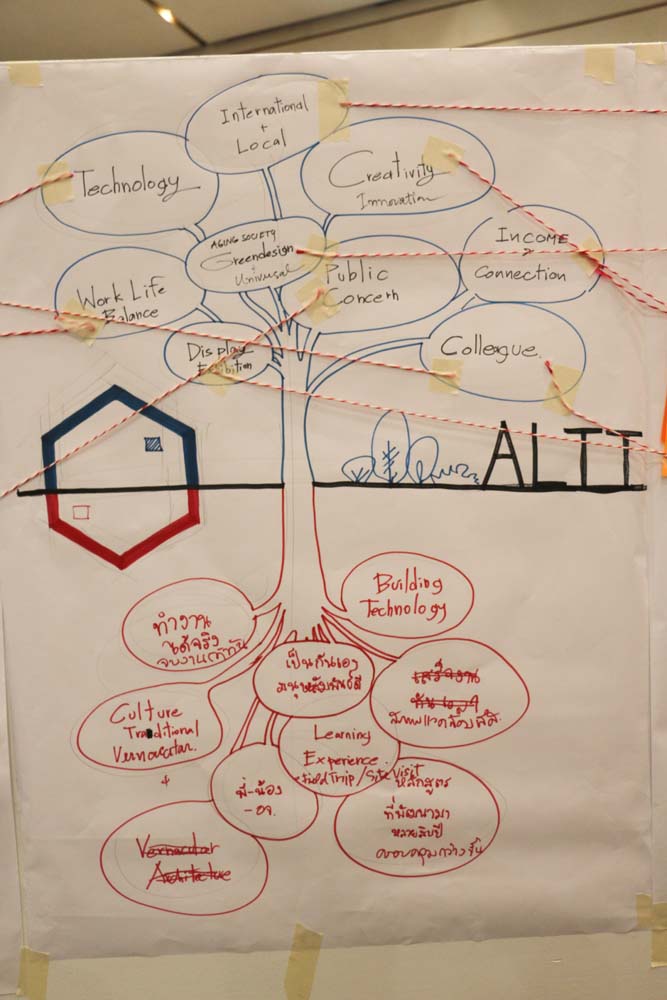 International
+
Local
Technology
Creativity
Innovation
AGING SOCIETY
Greendesign
+
Universal
INCOME
&
Connection
Public
Concern
Work Life
Balance
Display
Exibition
Colleague.
ALTT
Building
Technology
ทำงาน
ได้จริง
เป็นกันเอง
มนุษย์สัมพันธ์ดี
เสร็จงาน
ทันเวลา
สภาพแวดล้อมดี
Culture
Traditional
Vernacular.
+
Learning
Experience
Field Trip / Site Visit
พี่-น้อง
-อจ.
หลักสูตร
ที่พัฒนามา
หลายสิบปี
Vernacular
Architecture